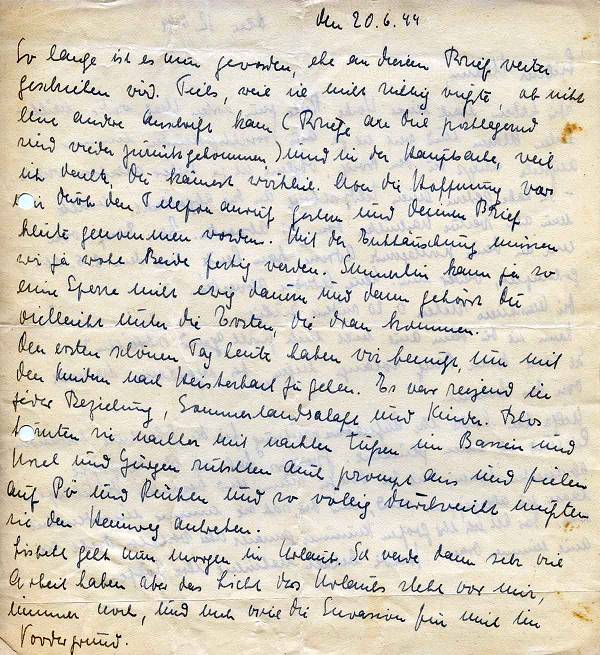 den 20.6.44
So lange ist es nun geworden, ehe an diesem Brief weiter
geschrieben wird. Teils, weil ich nicht richtig wußte, ob nicht
eine andere Anschrift kam (Briefe an Dich postlagernd
sind wieder zurückgekommen) und in der Hauptsache, weil
ich dachte, Du kämest wirklich. Nun die Hoffnung war
mir durch den Telefonanruf gestern und Deinen Brief
heute genommen worden. Mit der Enttäuschung müssen
wir ja wohl Beide fertig werden. Immerhin kann ja so
eine Sperre nicht ewig dauern und dann gehörst Du
vielleicht unter die Ersten, die dran kommen.
Den ersten schönen Tag heute haben wir benutzt, um mit
den Kindern nach Heisterbach zu gehen. Es war reizend in
jeder Beziehung, Sommerlandschaft und Kinder. Blos
mußten sie nachher mit nackten Füßen im Bassin und
Ursel und Jürgen rutschten auch prompt aus und fielen
auf Po und Rücken und so völlig durchweicht mußten
sie den Heimweg antreten.
Lisbeth geht nun morgen in Urlaub. Ich werde dann sehr viel
Arbeit haben aber das Licht des Urlaubs steht vor mir,
immer noch, und auch die Invasion für mich im
Vordergrund.